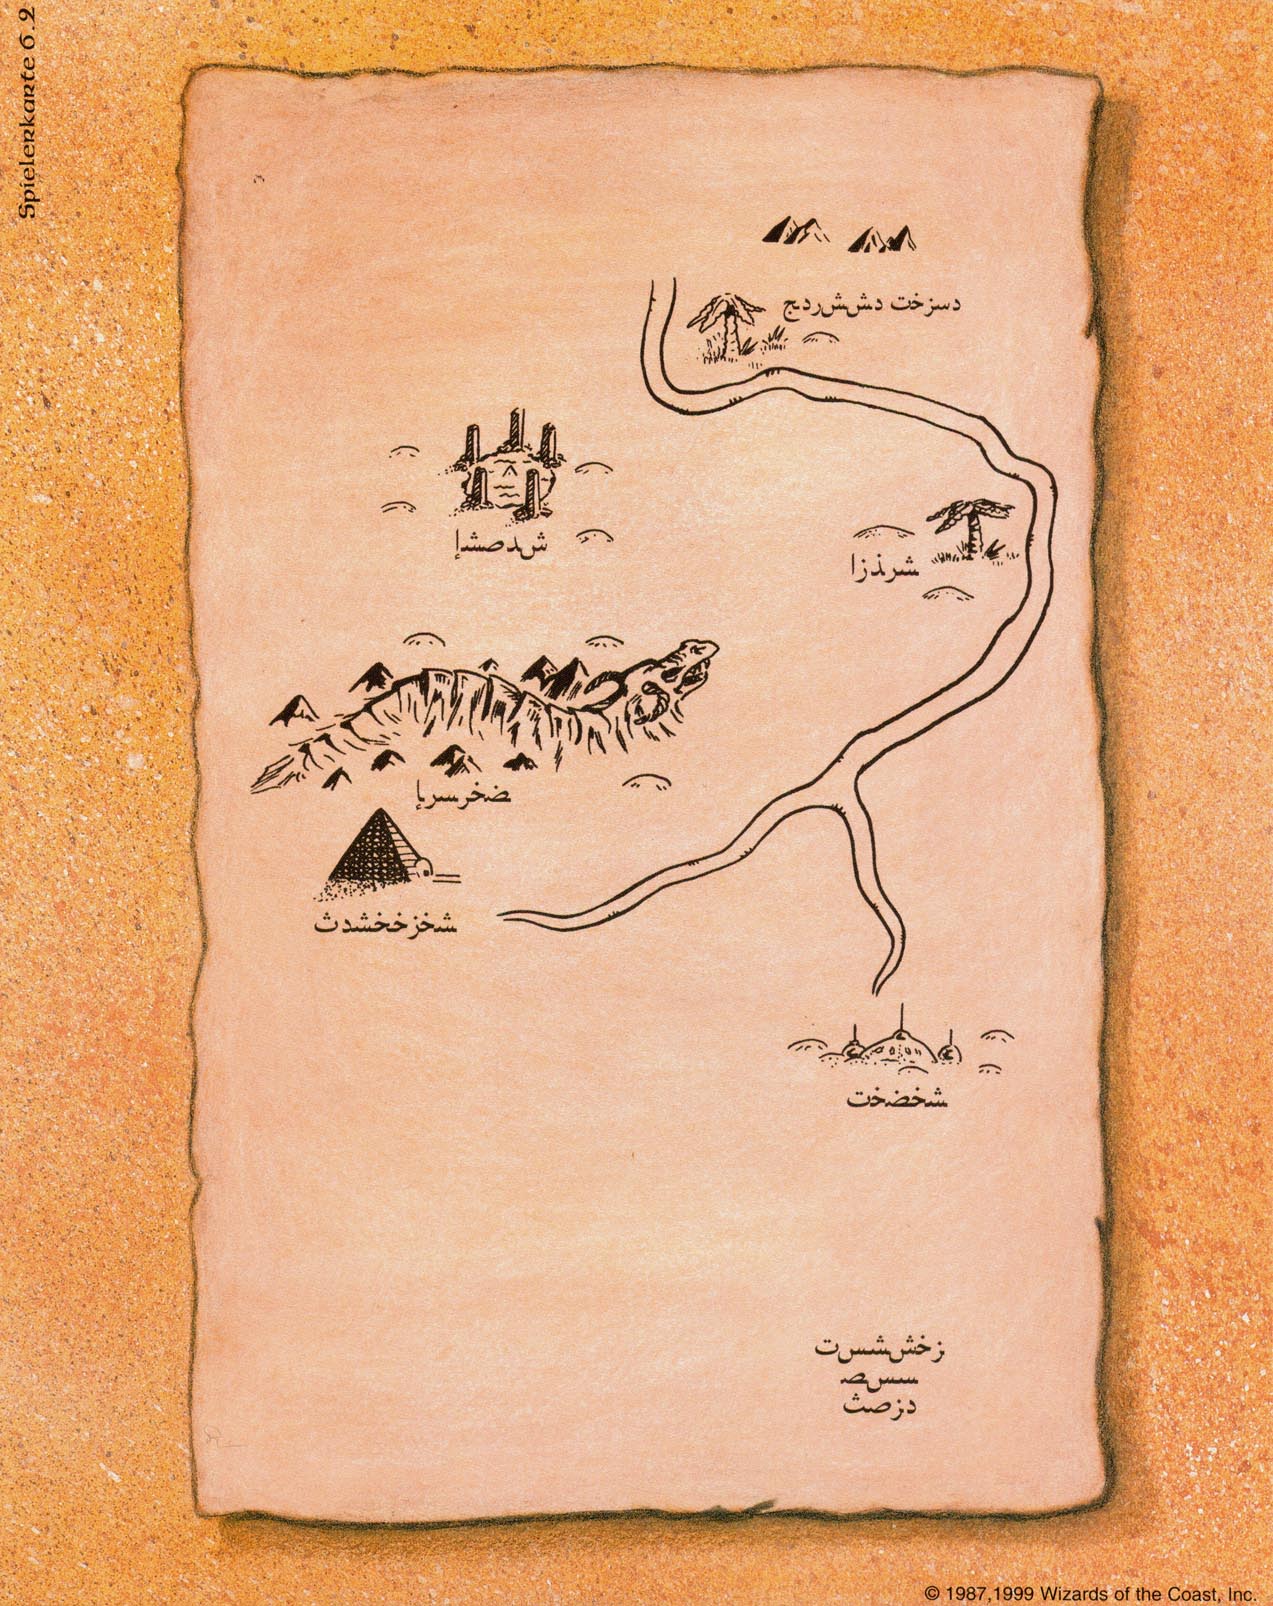 Spielerkarte 6.2
دسزخت دشش‌ردج
ش‌دصشإ
شرذزا
ضخرسرإ
شخزخخشدث
شخضخت
زخش‌شس‌ت
سس‌صـ
دزصث
© 1987,1999 Wizards of the Coast, Inc.